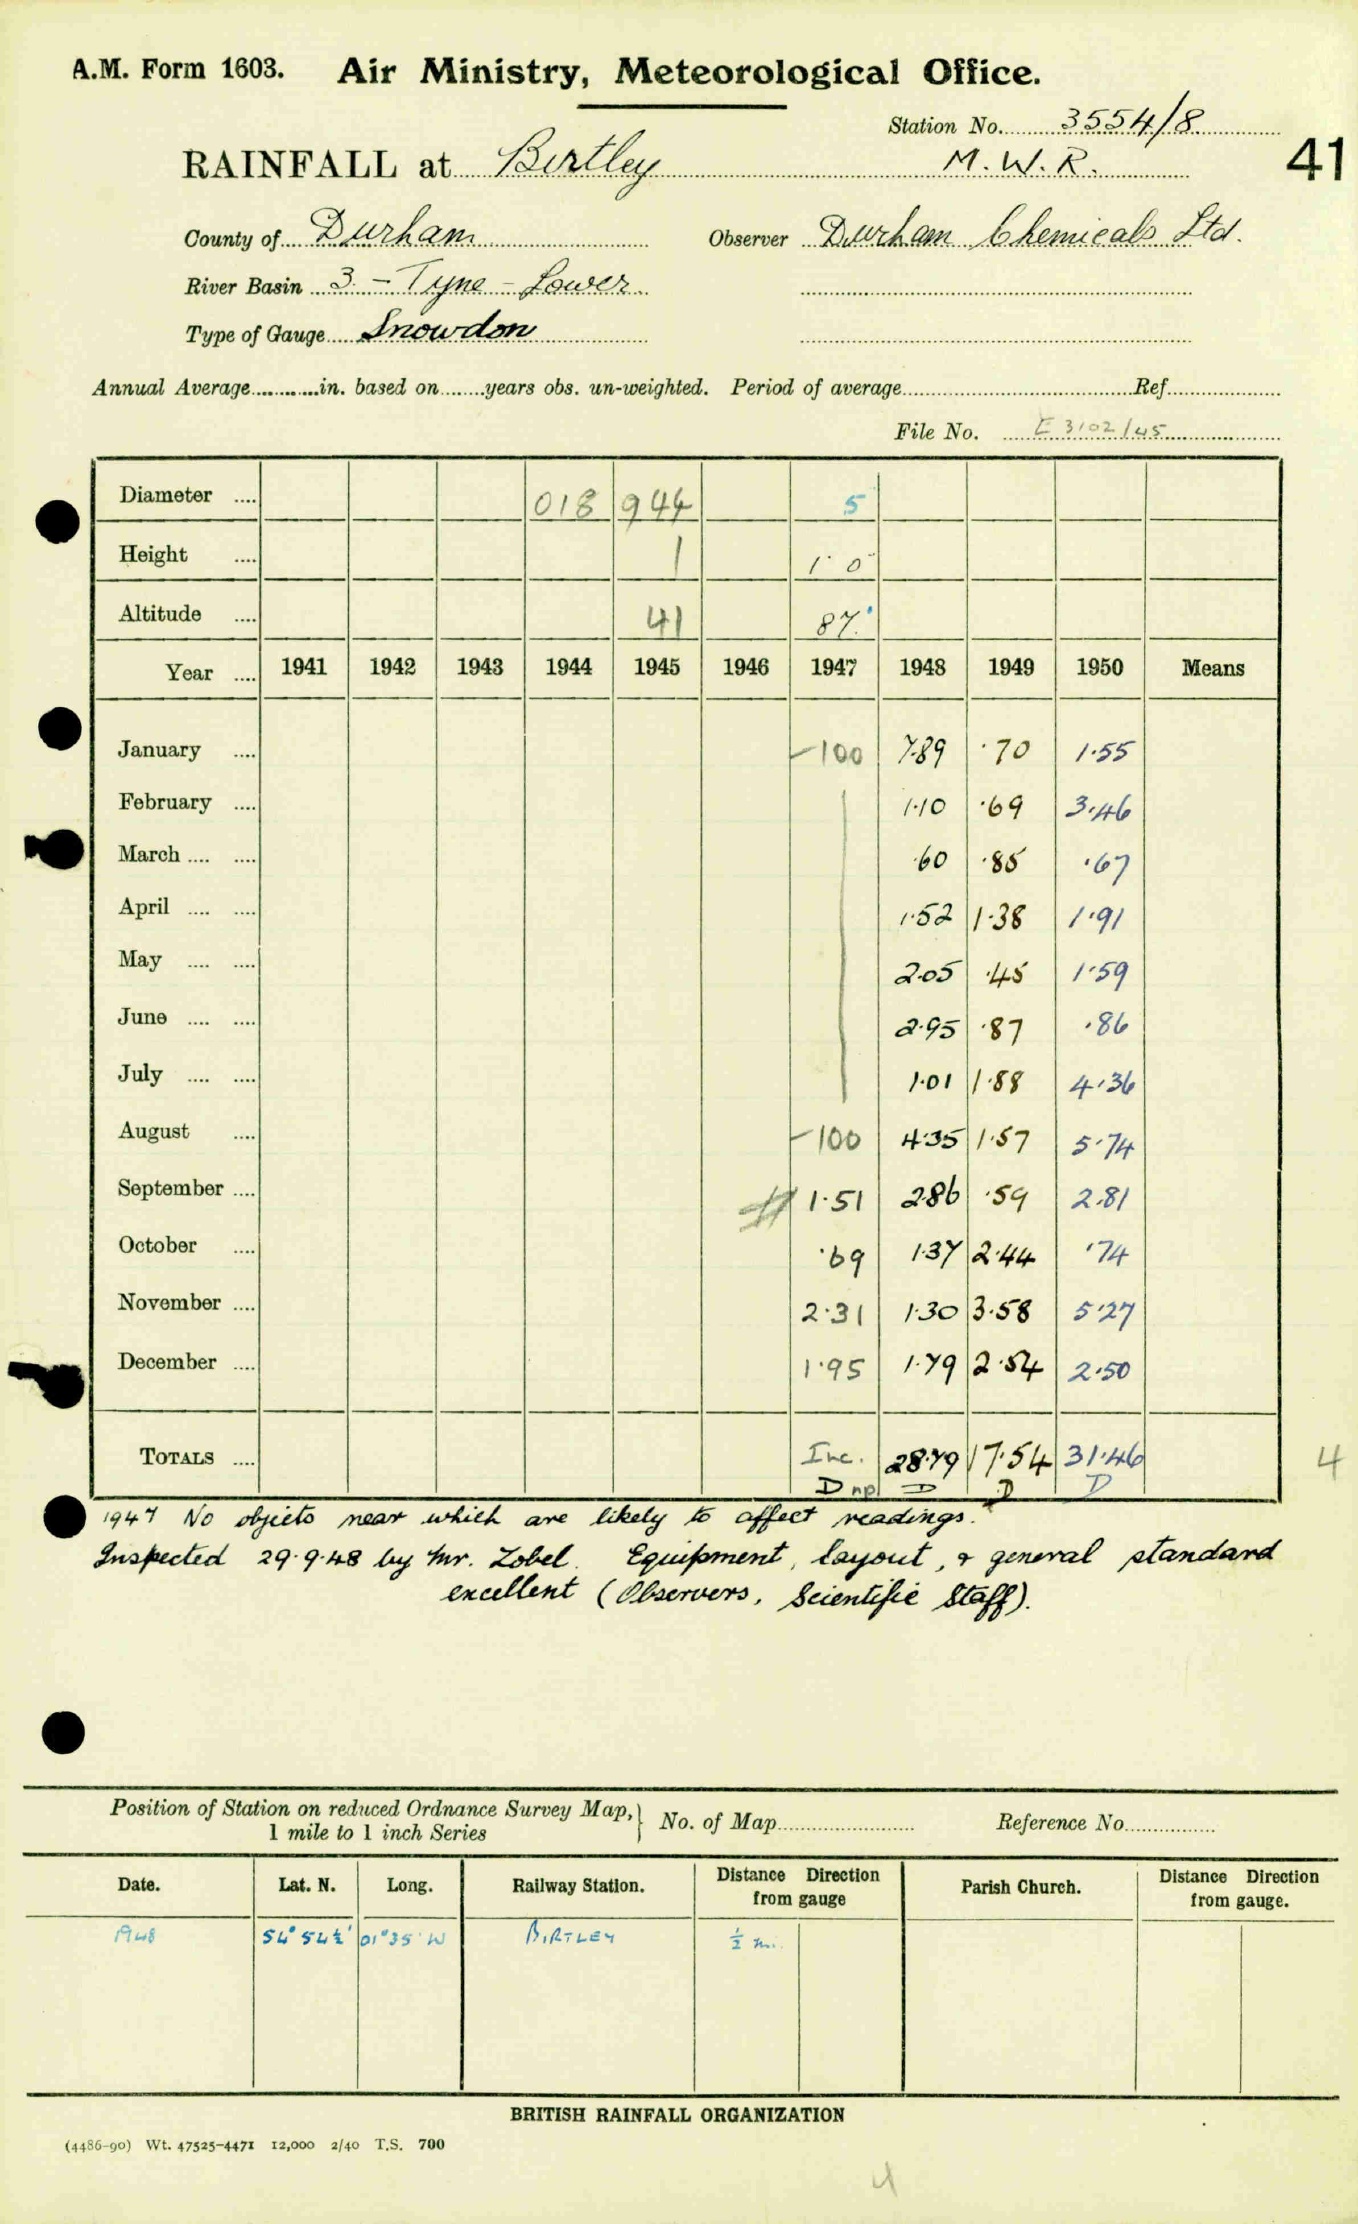 A.M. Form 1603. Air Ministry, Meteorological Office.
Station No. 3554/8
RAINFALL at Birtley M.W.R. 41
County of Durham Observer Durham Chemicals Ltd.
River Basin 3. - Tyne - Lower
Type of Gauge Snowdon
Annual Average in. based on years obs. un-weighted. Period of average Ref.
File No. E 3102/45
Diameter 018 944 5
Height 1 1' 0"
Altitude 41 87'
Year 1941 1942 1943 1944 1945 1946 1947 1948 1949 1950 Means
January -100 7.89 .70 1.55
February 1.10 .69 3.46
March .60 .85 .67
April 1.52 1.38 1.91
May 2.05 .45 1.59
June 2.95 .87 .86
July 1.01 1.88 4.36
August -100 4.35 1.57 5.74
September 1.51 2.86 .59 2.81
October .69 1.37 2.44 .74
November 2.31 1.30 3.58 5.27
December 1.95 1.79 2.54 2.50
TOTALS Inc. 28.79 17.54 31.46 4
D np D D D
1947 No objects near which are likely to affect readings.
Inspected 29.9.48 by Mr. Zobel. Equipment, layout, & general standard
excellent (Observers, Scientific Staff).
Position of Station on reduced Ordnance Survey Map, } No. of Map Reference No.
1 mile to 1 inch Series
Date. Lat. N. Long. Railway Station. Distance Direction from gauge Parish Church. Distance Direction from gauge.
1948 54° 54½' 01° 35' W BIRTLEY ½ mi.
BRITISH RAINFALL ORGANIZATION
(4486-90) Wt. 47525-4471 12,000 2/40 T.S. 700
4